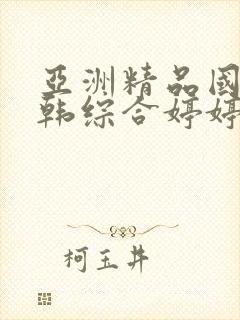 亞洲精品國
韩综合婷婷
柯玉井